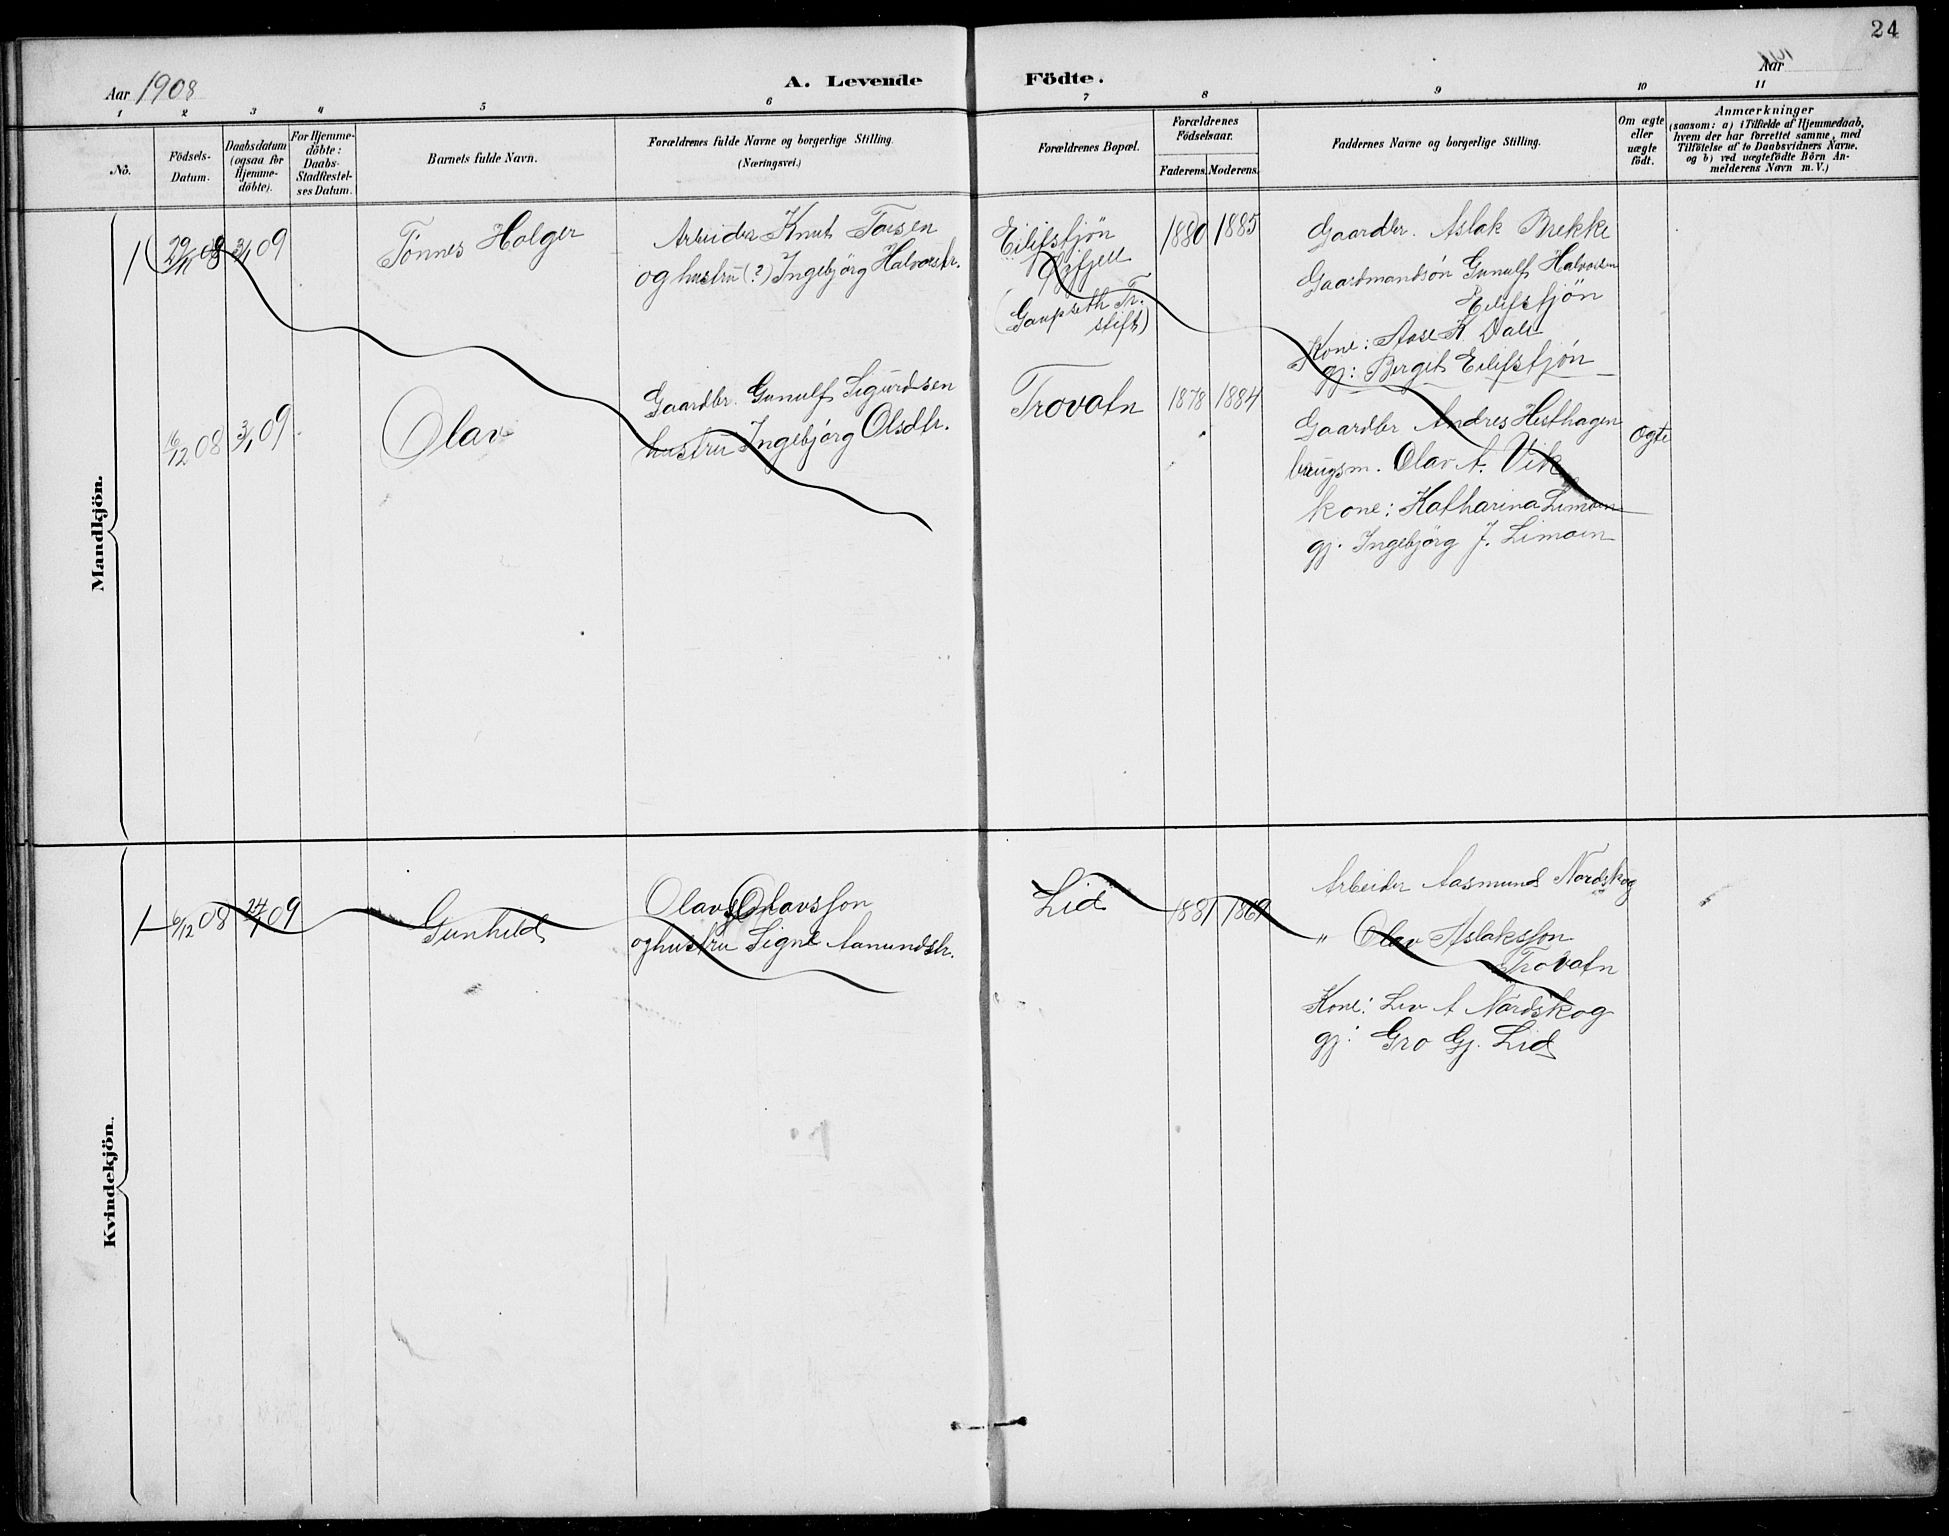 24
Aar 1908
A. Levende Födte.
Aar
1 2 3 4 5 6 7 8 9 10 11
No.
Födsels-
Datum.
Daabsdatum
(ogsaa for
Hjemme-
döbte).
For Hjemme-
döbte:
Daabs-
Stadfæstel-
ses Datum.
Barnets fulde Navn.
Forældrenes fulde Navne og borgerlige Stilling
(Næringsvei.)
Forældrenes Bopæl.
Forældrenes
Födselsaar.
Faderens. Moderens.
Faddernes Navne og borgerlige Stilling.
Om ægte
eller
uægte
födt.
Anmærkninger
(saasom: a) i Tilfælde af Hjemmedaab,
hvem der har forrettet samme, med
Tilföielse af to Daabsvidners Navne.
og b) ved uægtefödte Börn An-
melderens Navn m. V.)
Mandkjön.
1 29/11 08 3/1 09 Tönnes Holger
Arbeider Knut Torsen
og hustru (?) Ingebjörg Halvorsdtr.
Eilifstjön
Öifjell
(Gaupseth Tr.
stift)
1880 1885
Gaardbr. Aslak Brekke
Gaardmandsön Gunulf Halvorsen
Eilifstjön
Kone: Aase K Dale
gj: Bergit Eilifstjön
6/12 08 3/1 09 Olav
Gaardbr. Gunulf Sigurdsen
hustru Ingebjörg Olsdtr.
Trovatn 1878 1884
Gaardbr Andres Hesthagen
brugsm. Olav A. Vik
kone: Katharina Limoen
gj. Ingebjörg J. Limoen
Ogte
Kvindekjön.
1 6/12 08 24/1 09 Gunhild
Olav Olavsson
og hustru Signe Aamundsdtr.
Lid 1881 1869
Arbeider Aasmund Nordskog
" Olav Aslaksson
Trovatn
Kone: Liv A Nordskog
gj: Gro Gj. Lid